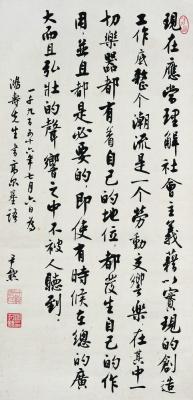 現在應當理解社會主義藉以實現的創造
工作底整个潮流是一个勞動交響樂，在其中一
切樂器都有着自己的地位，都發生自己的作
用，並且都是必要的，即使有時候在總的廣
大而且弘壯的聲響之中不被人聽到。
一千九百五十六年七月六日为
鴻壽先生書高尔基語
尹默